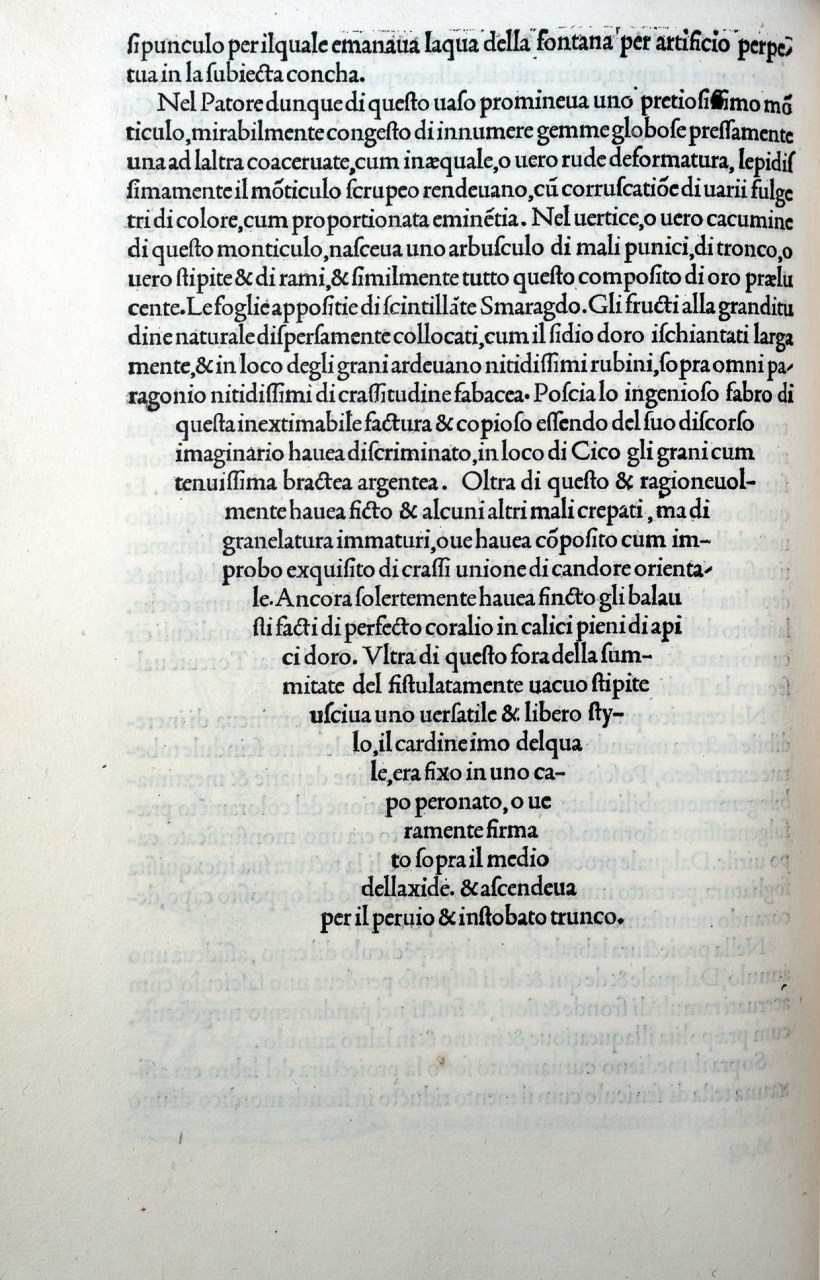 ſipunculo per ilquale emanaua laqua della fontana per artificio perpe-
tua in la ſubiecta concha.
Nel Patore dunque di queſto uaſo promineua uno pretioſiſſimo mõ
ticulo, mirabilmente congeſto di innumere gemme globoſe preſſamente
una ad laltra coaceruate, cum inæquale, o uero rude deformatura, lepidiſ
ſimamente il mõticulo ſcrupeo rendeuano, cũ corruſcatiõe di uarii fulge
tri di colore, cum proportionata eminẽtia. Nel uertice, o uero cacumine
di queſto monticulo, naſceua uno arbuſculo di mali punici, di tronco, o
uero ſtipite & di rami, & ſimilmente tutto queſto compoſito di oro prælu
cente. Le foglie appoſitie di ſcintillãte Smaragdo. Gli fructi alla granditu
dine naturale diſperſamente collocati, cum il ſidio doro iſchiantati larga
mente, & in loco degli grani ardeuano nitidiſſimi rubini, ſopra omni pa-
ragonio nitidiſſimi di craſſitudine fabacea. Poſcia lo ingenioſo fabro di
queſta inextimabile factura & copioſo eſſendo del ſuo diſcorſo
imaginario hauea diſcriminato, in loco di Cico gli grani cum
tenuiſſima bractea argentea. Oltra di queſto & ragioneuol-
mente hauea ficto & alcuni altri mali crepati, ma di
granelatura immaturi, oue hauea cõpoſito cum im-
probo exquiſito di craſſi unione di candore orienta-
le. Ancora ſolertemente hauea fincto gli balau
ſti facti di perfecto coralio in calici pieni di api
ci doro. Vltra di queſto fora della ſum-
mitate del fiſtulatamente uacuo ſtipite
uſciua uno uerſatile & libero ſty-
lo, il cardine imo delqua
le, era fixo in uno ca-
po peronato, o ue
ramente firma
to ſopra il medio
dellaxide. & aſcendeua
per il peruio & inſtobato trunco.